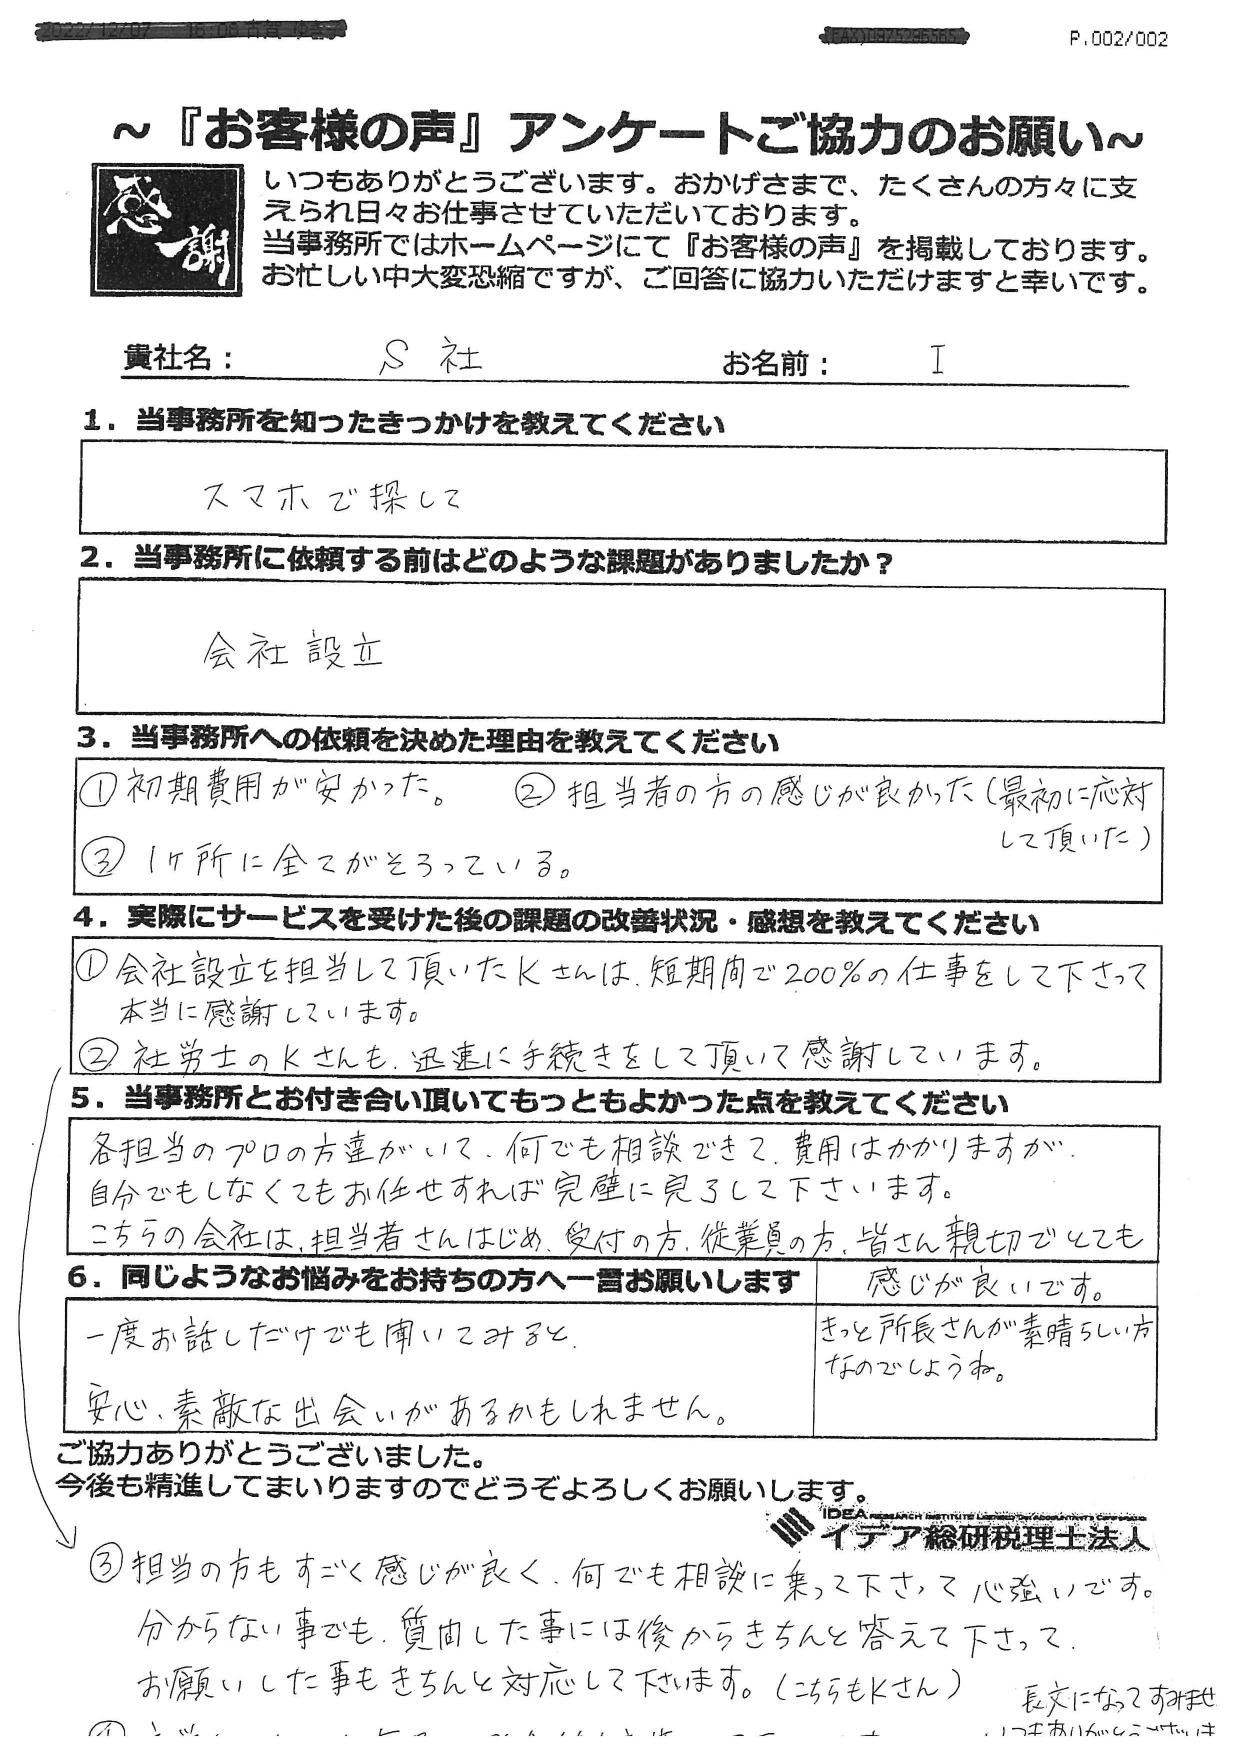 P.002/002
～『お客様の声』アンケートご協力のお願い～
感謝
いつもありがとうございます。おかげさまで、たくさんの方々に支
えられ日々お仕事させていただいております。
当事務所ではホームページにて『お客様の声』を掲載しております。
お忙しい中大変恐縮ですが、ご回答に協力いただけますと幸いです。
貴社名： S 社 お名前： I
1．当事務所を知ったきっかけを教えてください
スマホで探して
2．当事務所に依頼する前はどのような課題がありましたか？
会社設立
3．当事務所への依頼を決めた理由を教えてください
① 初期費用が安かった。 ② 担当者の方の感じが良かった（最初に応対
して頂いた）
③ 1ヶ所に全てがそろっている。
4．実際にサービスを受けた後の課題の改善状況・感想を教えてください
① 会社設立を担当して頂いたKさんは、短期間で200%の仕事をして下さって
本当に感謝しています。
② 社労士のKさんも、迅速に手続きをして頂いて感謝しています。
5．当事務所とお付き合い頂いてもっともよかった点を教えてください
各担当のプロの方達がいて、何でも相談できて、費用はかかりますが、
自分でもしなくてもお任せすれば完璧に完了して下さいます。
こちらの会社は、担当者さんはじめ、受付の方、従業員の方、皆さん親切でとても
感じが良いです。
きっと所長さんが素晴らしい方
なのでしょうね。
6．同じようなお悩みをお持ちの方へ一言お願いします
一度お話しだけでも聞いてみると、
安心、素敵な出会いがあるかもしれません。
ご協力ありがとうございました。
今後も精進してまいりますのでどうぞよろしくお願いします。
IDEA
イデア総研税理士法人
③ 担当の方もすごく感じが良く、何でも相談に乗って下さって心強いです。
分からない事でも、質問した事には後からきちんと答えて下さって、
お願いした事もきちんと対応して下さいます。（こちらもKさん）
長文になってすみませ